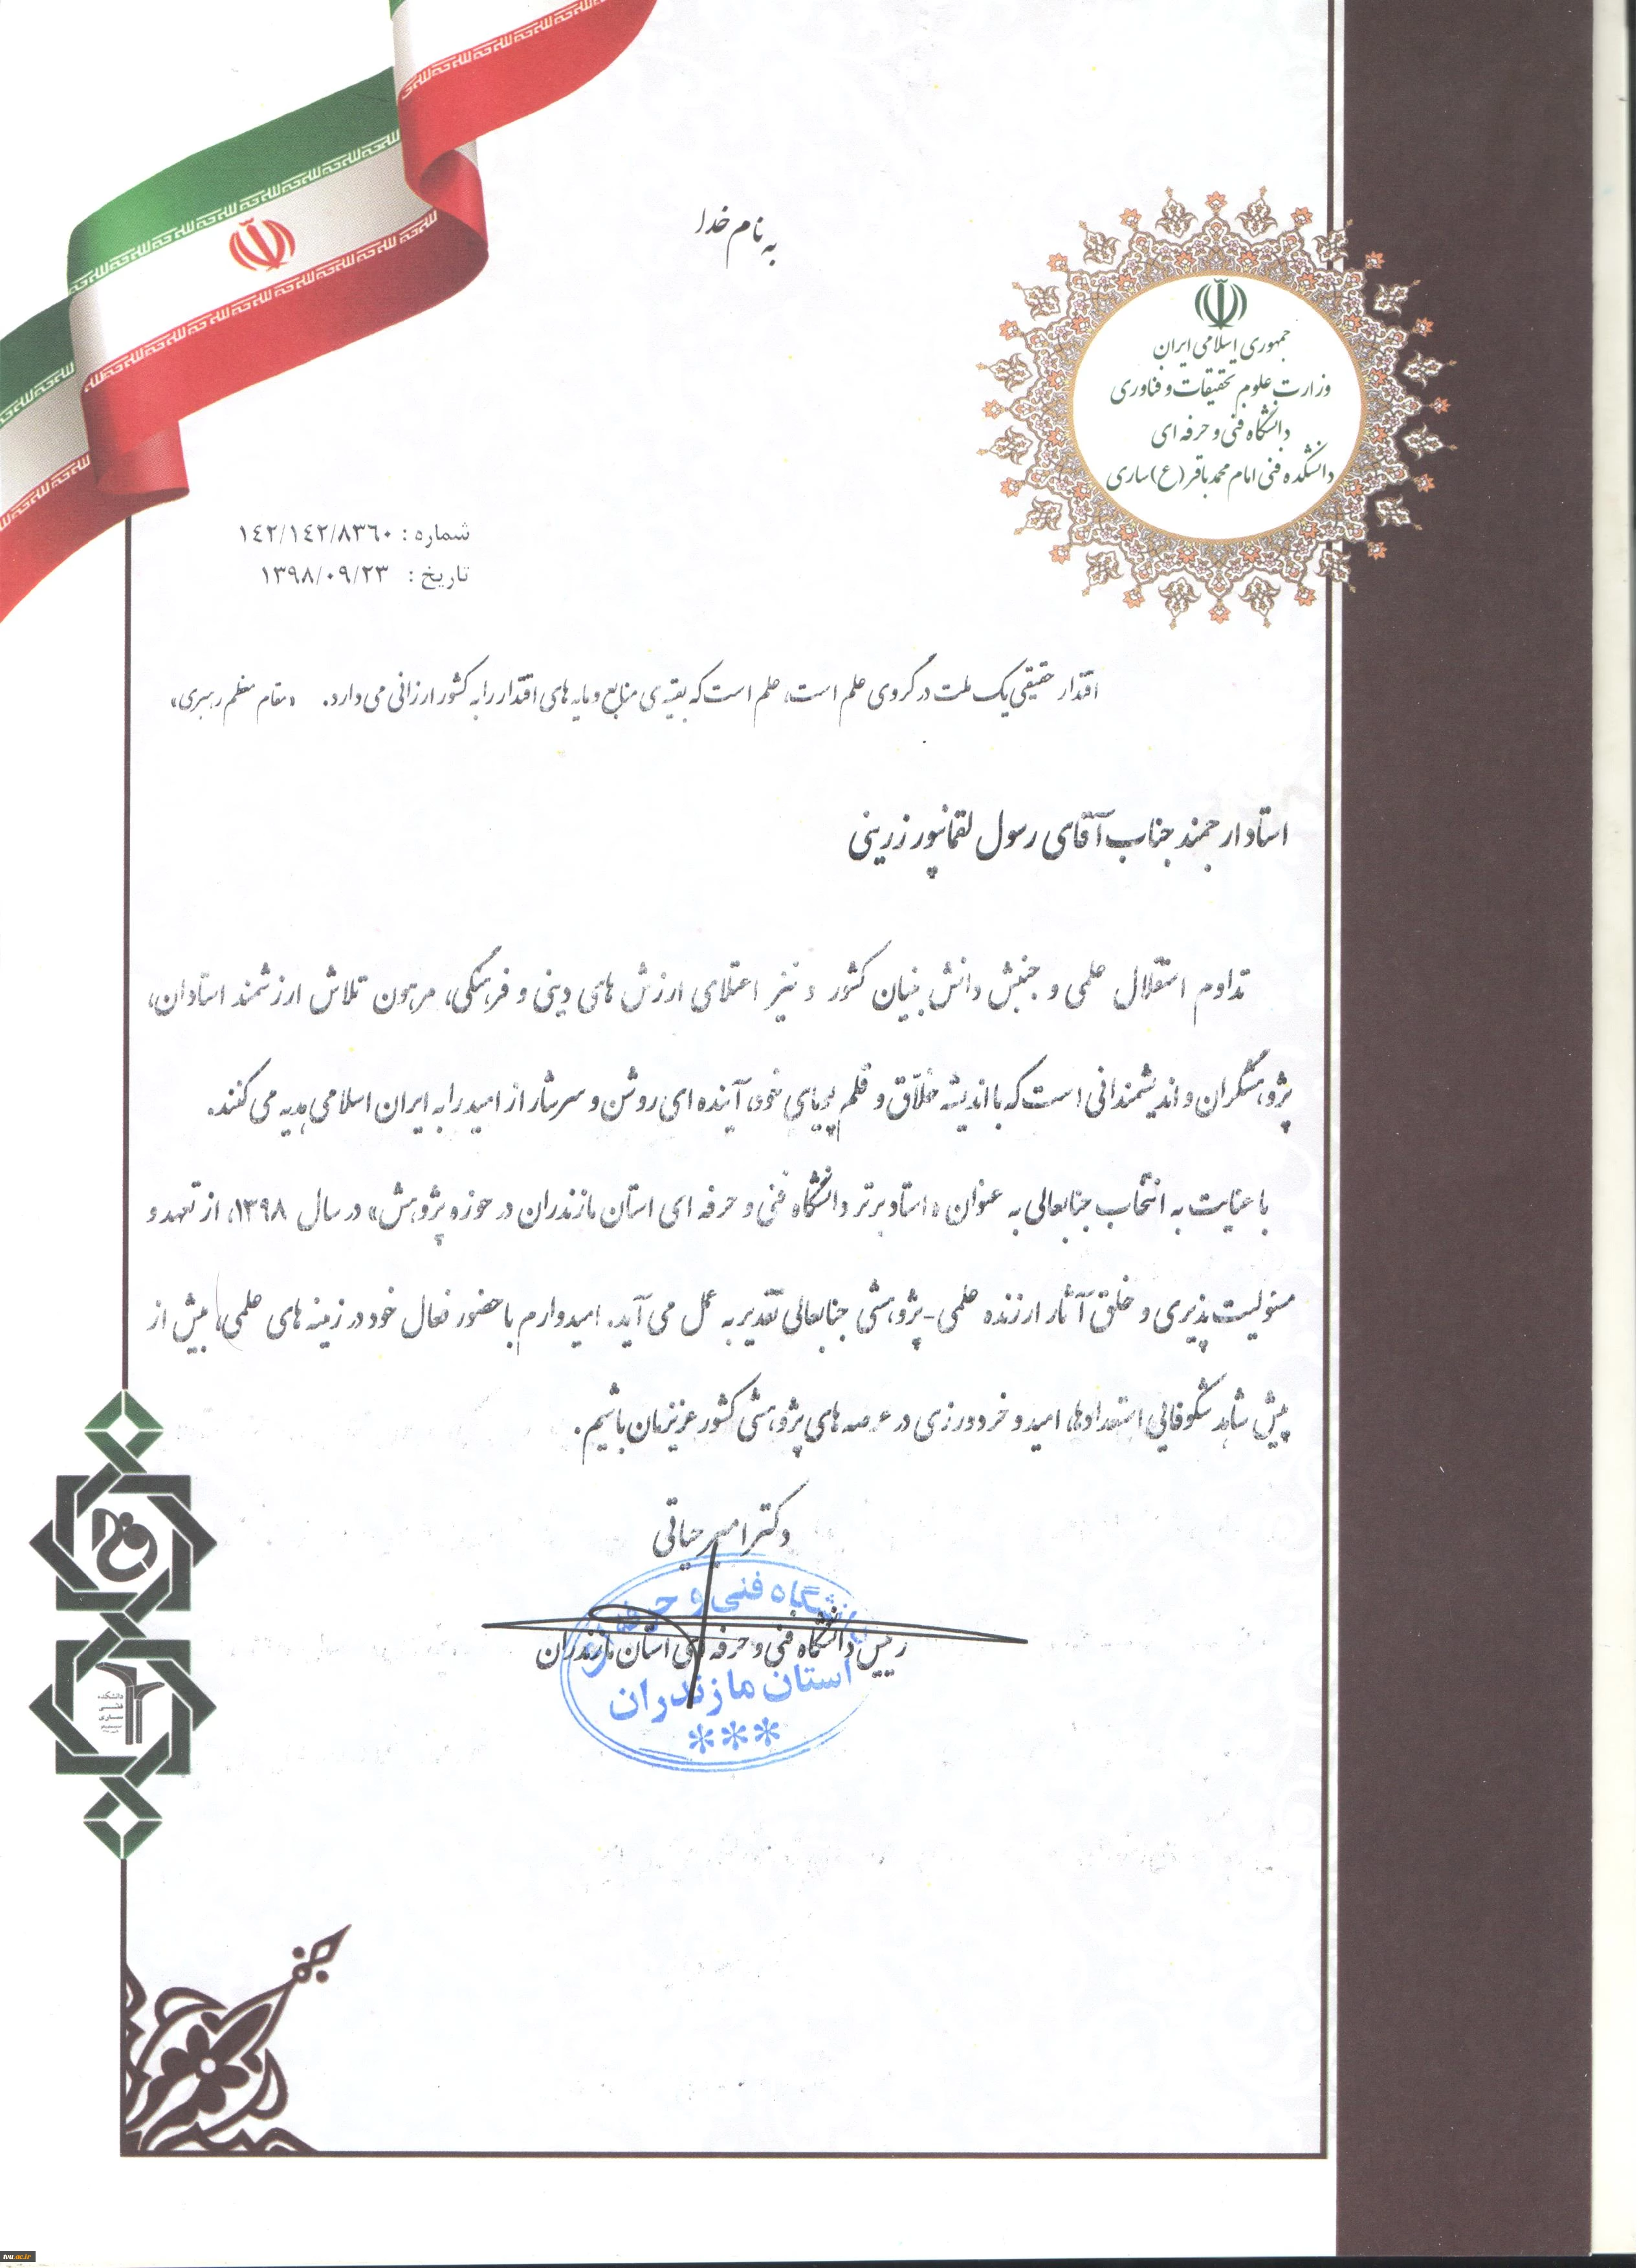 به نام خدا
جمهوری اسلامی ایران
وزارت علوم تحقیقات و فناوری
دانشگاه فنی و حرفه ای
دانشکده فنی امام محمد باقر (ع) ساری
شماره : ۱۴۲/۱۴۲/۸۳۶۰
تاریخ : ۱۳۹۸/۰۹/۲۳
اقتدار حقیقی یک ملت در گروی علم است، علم است که بقیه ی منابع و مایه های اقتدار را به کشور ارزانی می دارد. «مقام معظم رهبری»
استاد ارجمند جناب آقای رسول لقمانپور زرینی
تداوم استقلال علمی و جنبش دانش بنیان کشور و نیز اعتلای ارزش های دینی و فرهنگی، مرهون تلاش ارزشمند استادان،
پژوهشگران و اندیشمندانی است که با اندیشه خلّاق و قلم پویای خود، آینده ای روشن و سرشار از امید را به ایران اسلامی هدیه می کنند.
با عنایت به انتخاب جنابعالی به عنوان «استاد برتر دانشگاه فنی و حرفه ای استان مازندران در حوزه پژوهش» در سال ۱۳۹۸، از تعهد و
مسئولیت پذیری و خلق آثار ارزنده علمی-پژوهشی جنابعالی تقدیر به عمل می آید. امیدوارم با حضور فعال خود در زمینه های علمی، بیش از
پیش شاهد شکوفایی استعدادها، امید و خردورزی در عرصه های پژوهشی کشور عزیزمان باشیم.
دکتر امیر حیاتی
رییس دانشگاه فنی و حرفه ای استان مازندران
دانشگاه فنی و حرفه ای
استان مازندران
***
دانشکده
فنی
ساری
tvu.ac.ir